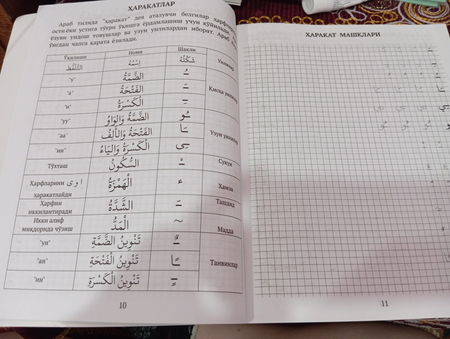 ҲАРАКАТЛАР
Араб тилида "ҳаракат" деб аталувчи белгилар ҳарфнинг
ости ёки устига тўғри ўқишга ёрдамлашиш учун қўйилади.
ёзуви ундош товушлар ва узун унлилардан иборат. Араб
ўнгдан чапга қарата ёзилади.
Ўқилиши Номи Шакли
اِسْمُهُ شَكْلُهُ
"у" الضَّمَّةُ ـُ
"а" الْفَتْحَةُ ـَ Қисқа
"и" الْكَسْرَةُ ـِ
"уу" الضَّمَّةُ وَالْوَاوُ ـُو
"аа" الْفَتْحَةُ وَالْأَلِفُ ـَا Узун
"ии" الْكَسْرَةُ وَالْيَاءُ ـِي
Тўхташ السُّكُونُ ـْ Сукун
Ҳарфларини ا و ي ҳаракатлайди الْهَمْزَةُ ء Ҳамза
Ҳарфни иккилантиради الشَّدَّةُ ـّ Ташдид
Икки алиф миқдорида чўзиш الْمَدُّ ~ Мадда
"ун" تَنْوِينُ الضَّمَّةِ ـٌ
"ан" تَنْوِينُ الْفَتْحَةِ ـًا Танвинлар
"ин" تَنْوِينُ الْكَسْرَةِ ـٍ
10
ҲАРАКАТ МАШҚЛАРИ
11